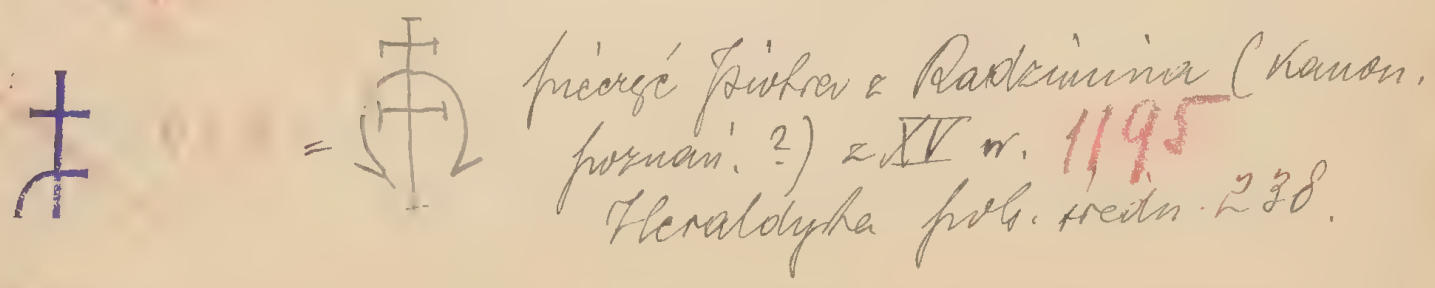 = pieczęć Piotra z Radzimina (Kanon.
poznań. ?) z XV w. 1195
Heraldyka pols. średn. 238.